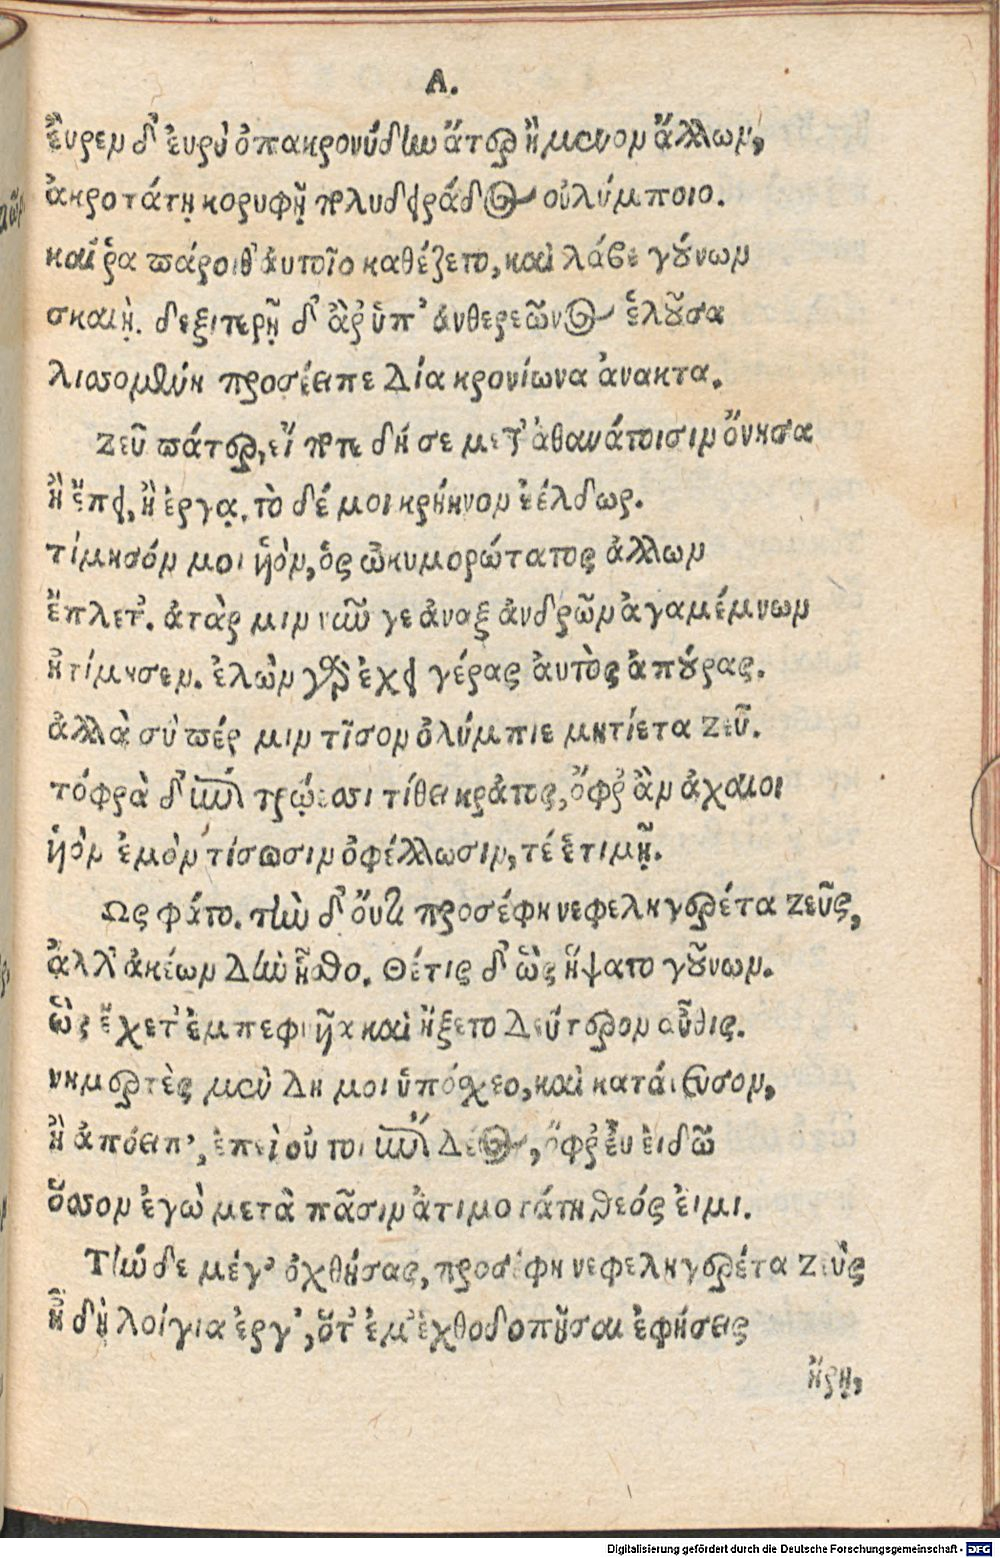 Α.
ἕυρεν δ' ἐυρύοπα κρονίδην ἄτερ ἥμενον ἄλλων,
ἀκροτάτῃ κορυφῇ πολυδειράδος οὐλύμποιο.
καί ῥα πάροιθ' ἀυτοῖο καθέζετο, καὶ λάβε γούνων
σκαιῇ. δεξιτερῇ δ' ἂρ ὑπ' ἀνθερεῶνος ἑλοῦσα
λισσομένη προσέειπε Δία κρονίωνα ἄνακτα.
Ζεῦ πάτερ, εἴ ποτε δή σε μετ' ἀθανάτοισιν ὄνησα
ἢ ἔπει, ἢ ἔργῳ. τὸ δέ μοι κρήηνον ἐέλδωρ.
τίμησόν μοι ἡὸν, ὃς ὠκυμορώτατος ἄλλων
ἔπλετ'. ἀτὰρ μιν νῦν γε ἄναξ ἀνδρῶν ἀγαμέμνων
ἠτίμησεν. ἑλὼν γὰρ ἔχει γέρας ἀυτὸς ἀπούρας.
ἀλλὰ σύ πέρ μιν τῖσον ὀλύμπιε μητίετα Ζεῦ.
τόφρα δ' ἐπὶ τρώεσσι τίθει κράτος, ὄφρ' ἂν ἀχαιοι
ἡὸν ἐμὸν τίσωσιν ὀφέλλωσιν, τέ ἑ τιμῇ.
Ως φάτο. τὴν δ' ὄυτι προσέφη νεφεληγερέτα Ζεῦς,
ἀλλ' ἀκέων Δὴν ἧσθο. Θέτις δ' ὣς ἥψατο γούνων.
ὣς ἔχετ' ἐμπεφυῆα καὶ ἤξετο Δεύτερον αὖθις.
νημερτὲς μὲν Δη μοι ὑπόσχεο, καὶ κατάνευσον,
ἢ ἀπόειπ', ἐπεὶ οὔ τοι ἔπι Δέος, ὄφρ' ἐυ ἐιδῶ
ὅσσον ἐγὼ μετὰ πᾶσιν ἀτιμοτάτη θεός ἐιμι.
Τὴν δε μέγ' ὀχθήσας, προσέφη νεφεληγερέτα Ζεὺς
ἦ δὴ λοίγια ἐργ', ὅτ' ἐμ' ἐχθοδοπῆσαι ἐφήσεις
ἥρῃ,
Digitalisierung gefördert durch die Deutsche Forschungsgemeinschaft - DFG